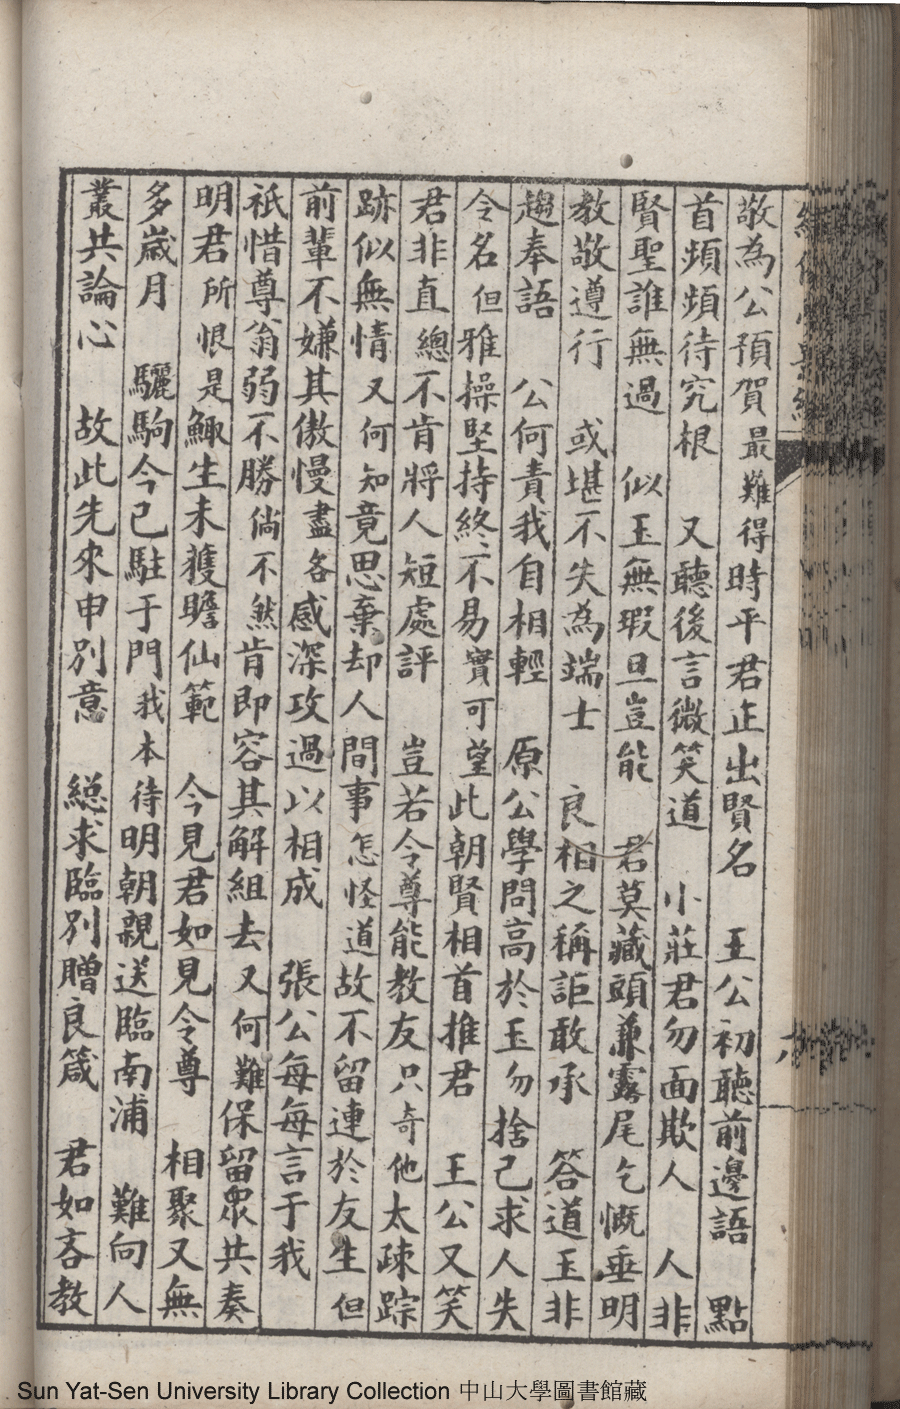 敬為公預賀最難得時平君正出賢名　王公初聽前邊語　點
首頻頻待究根　又聽後言微笑道　小莊君勿面欺人　人非
賢聖誰無過　似玉無瑕旦豈能　君莫藏頭兼露尾乞慨垂明
教敬遵行　或堪不失為端士　良相之稱詎敢承　答道玉非
趨奉語　公何責我自相輕　原公學問高於玉勿捨己求人失
令名但雅操堅持終不易實可望此朝賢相首推君　王公又笑
君非直總不肯將人短處評　豈若令尊能教友只奇他太疎踪
跡似無情又何知竟思棄却人間事怎怪道故不留連於友生但
前輩不嫌其傲慢盡各感深攻過以相成　張公每每言于我
祇惜尊翁弱不勝倘不然肯即容其解組去又何難保留眾共奏
明君所恨是鯫生未獲瞻仙範　今見君如見令尊　相聚又無
多歲月　驪駒今已駐于門我本待明朝親送臨南浦　難向人
叢共論心　故此先來申別意　總求臨別贈良箴　君如吝教
Sun Yat-Sen University Library Collection 中山大學圖書館藏